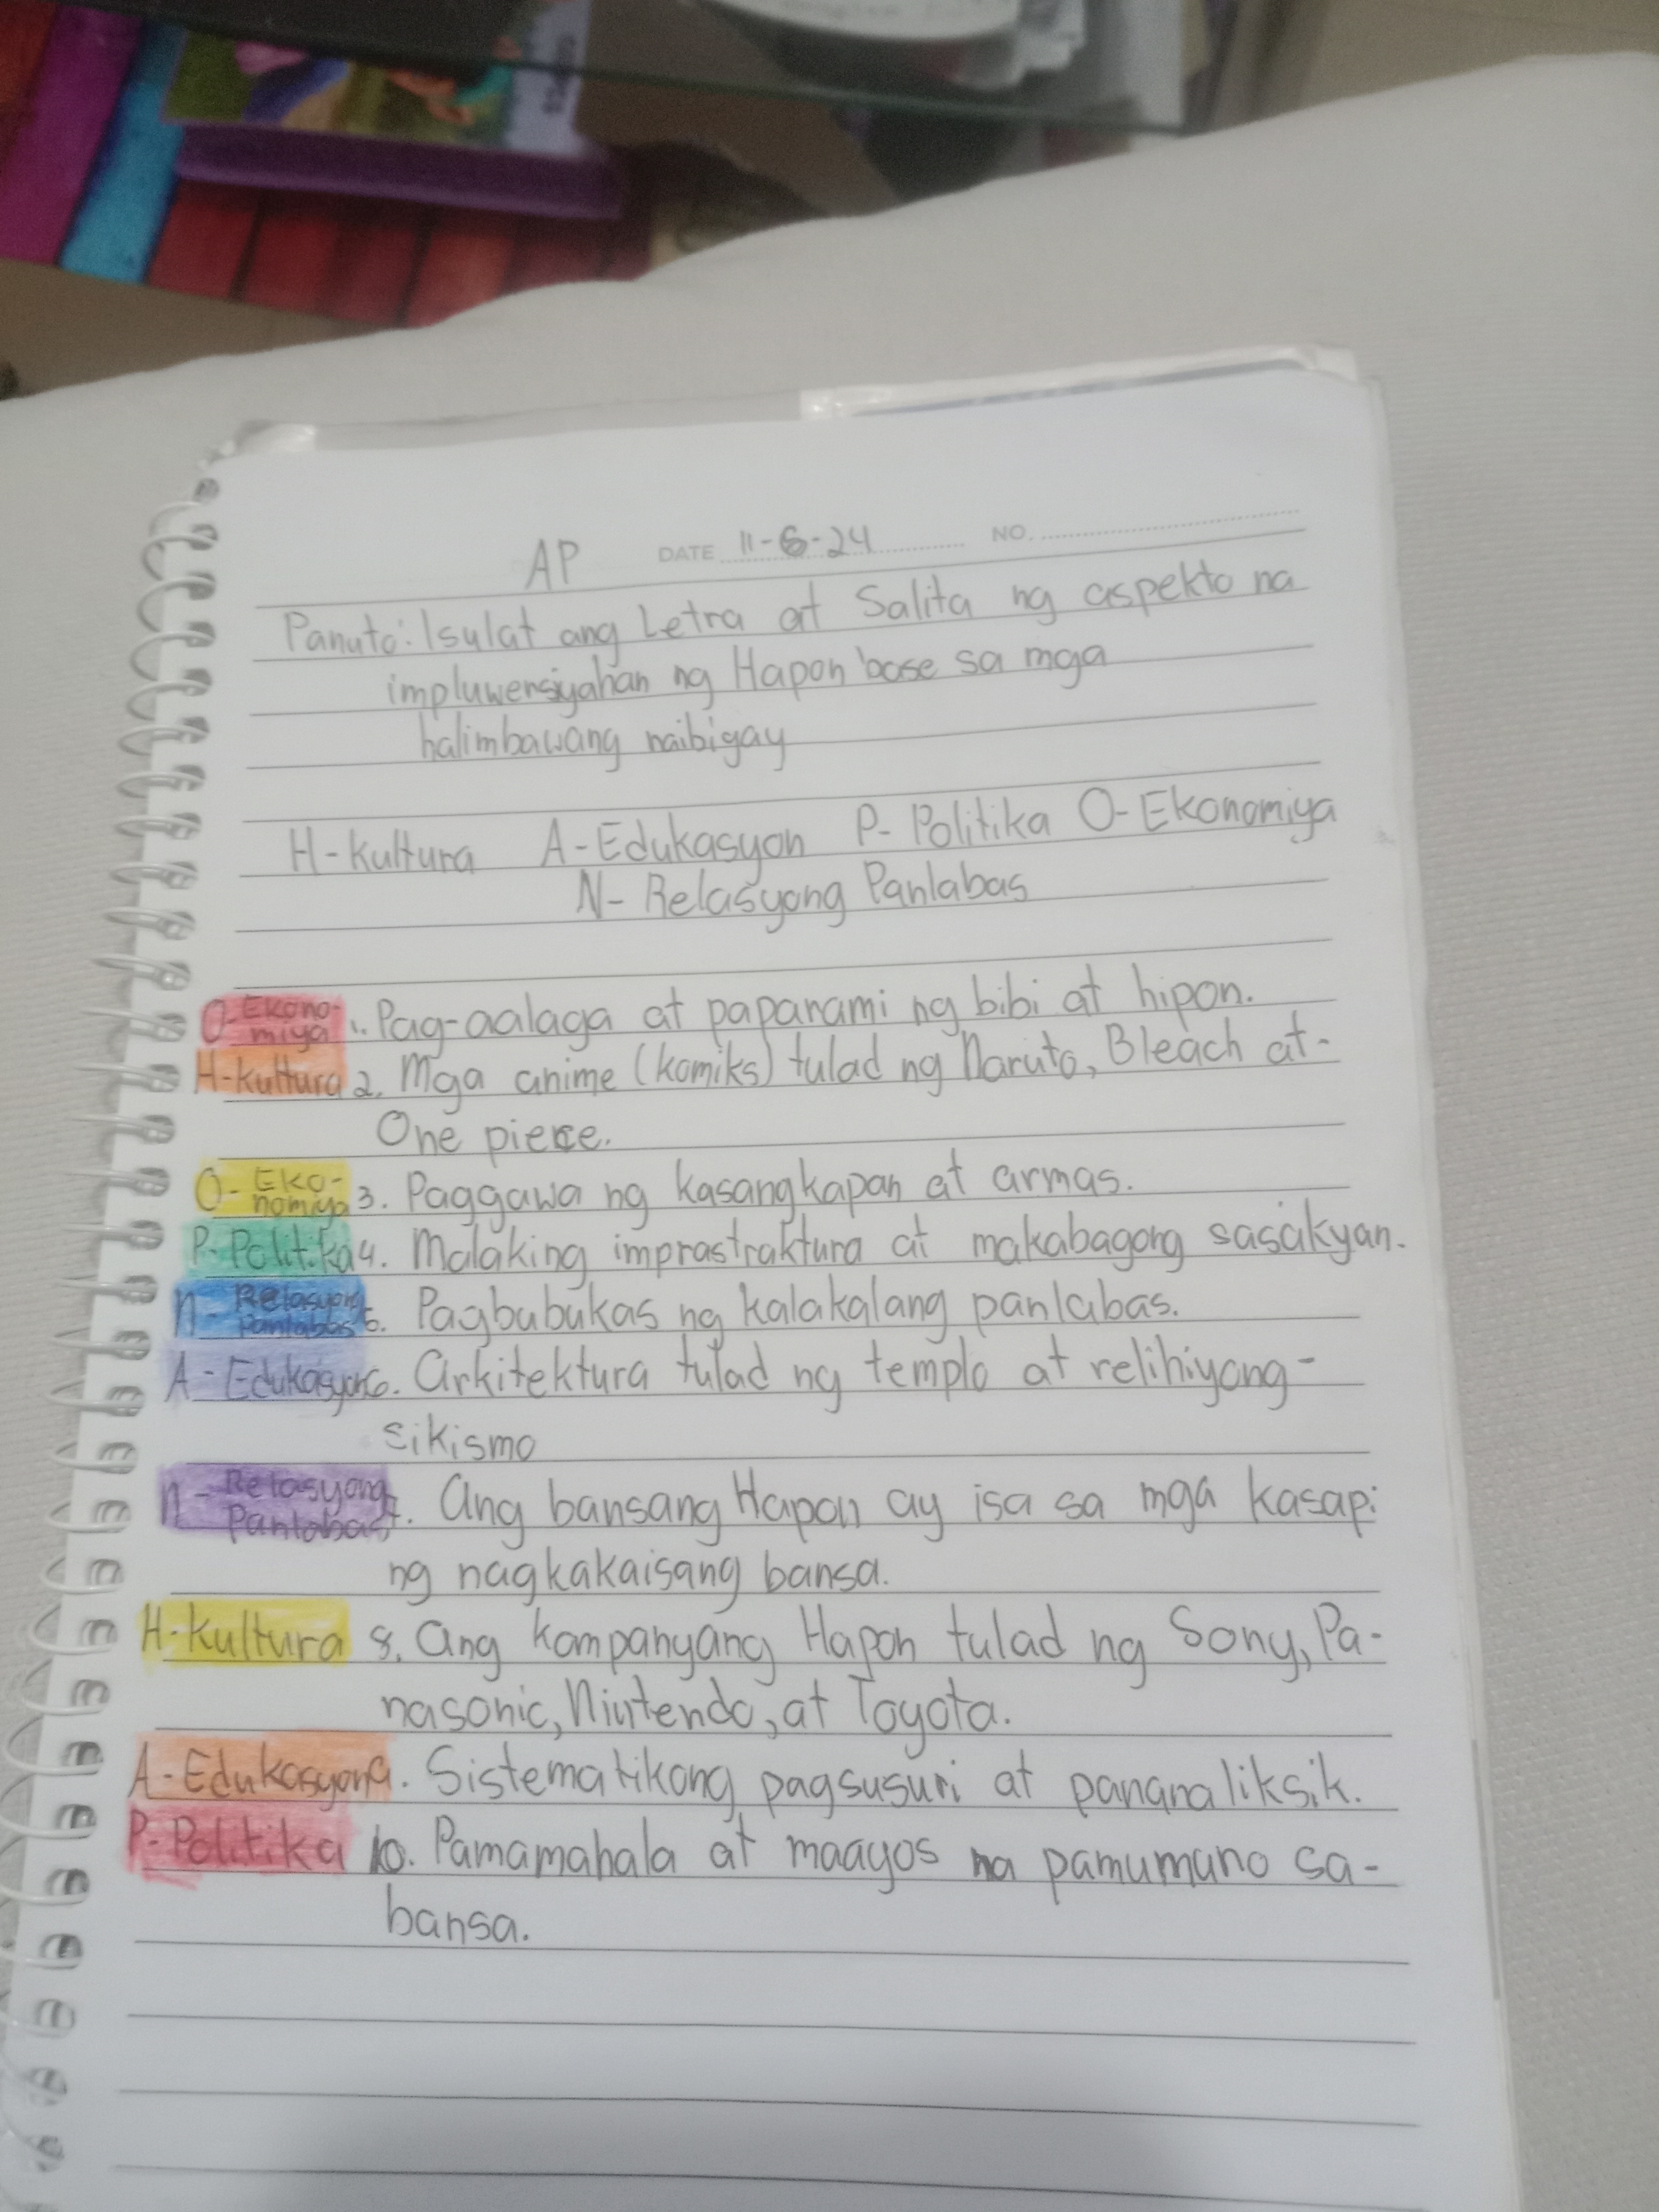 AP DATE 11-6-24 NO.
Panuto: Isulat ang Letra at Salita ng aspekto na
impluwensiyahan ng Hapon base sa mga
halimbawang naibigay
H-Kultura A-Edukasyon P-Politika O-Ekonomiya
N-Relasyong Panlabas
O-Ekono-miya 1. Pag-aalaga at papanami ng bibi at hipon.
H-Kultura 2. Mga anime (komiks) tulad ng Naruto, Bleach at-
One pierce.
O-Eko-nomiya 3. Paggawa ng kasangkapan at armas.
P-Politika 4. Malaking imprastraktura at makabagong sasakyan.
N-Relasyong Panlabas 5. Pagbubukas ng kalakalang panlabas.
A-Edukasyon 6. Arkitektura tulad ng templo at relihiyong-
sikismo
N-Relasyong Panlabas 7. Ang bansang Hapon ay isa sa mga kasapi
ng nagkakaisang bansa.
H-Kultura 8. Ang kompanyang Hapon tulad ng Sony, Pa-
nasonic, Nintendo, at Toyota.
A-Edukasyon 9. Sistematikong pagsusuri at pananaliksik.
P-Politika 10. Pamamahala at maayos na pamumuno sa-
bansa.